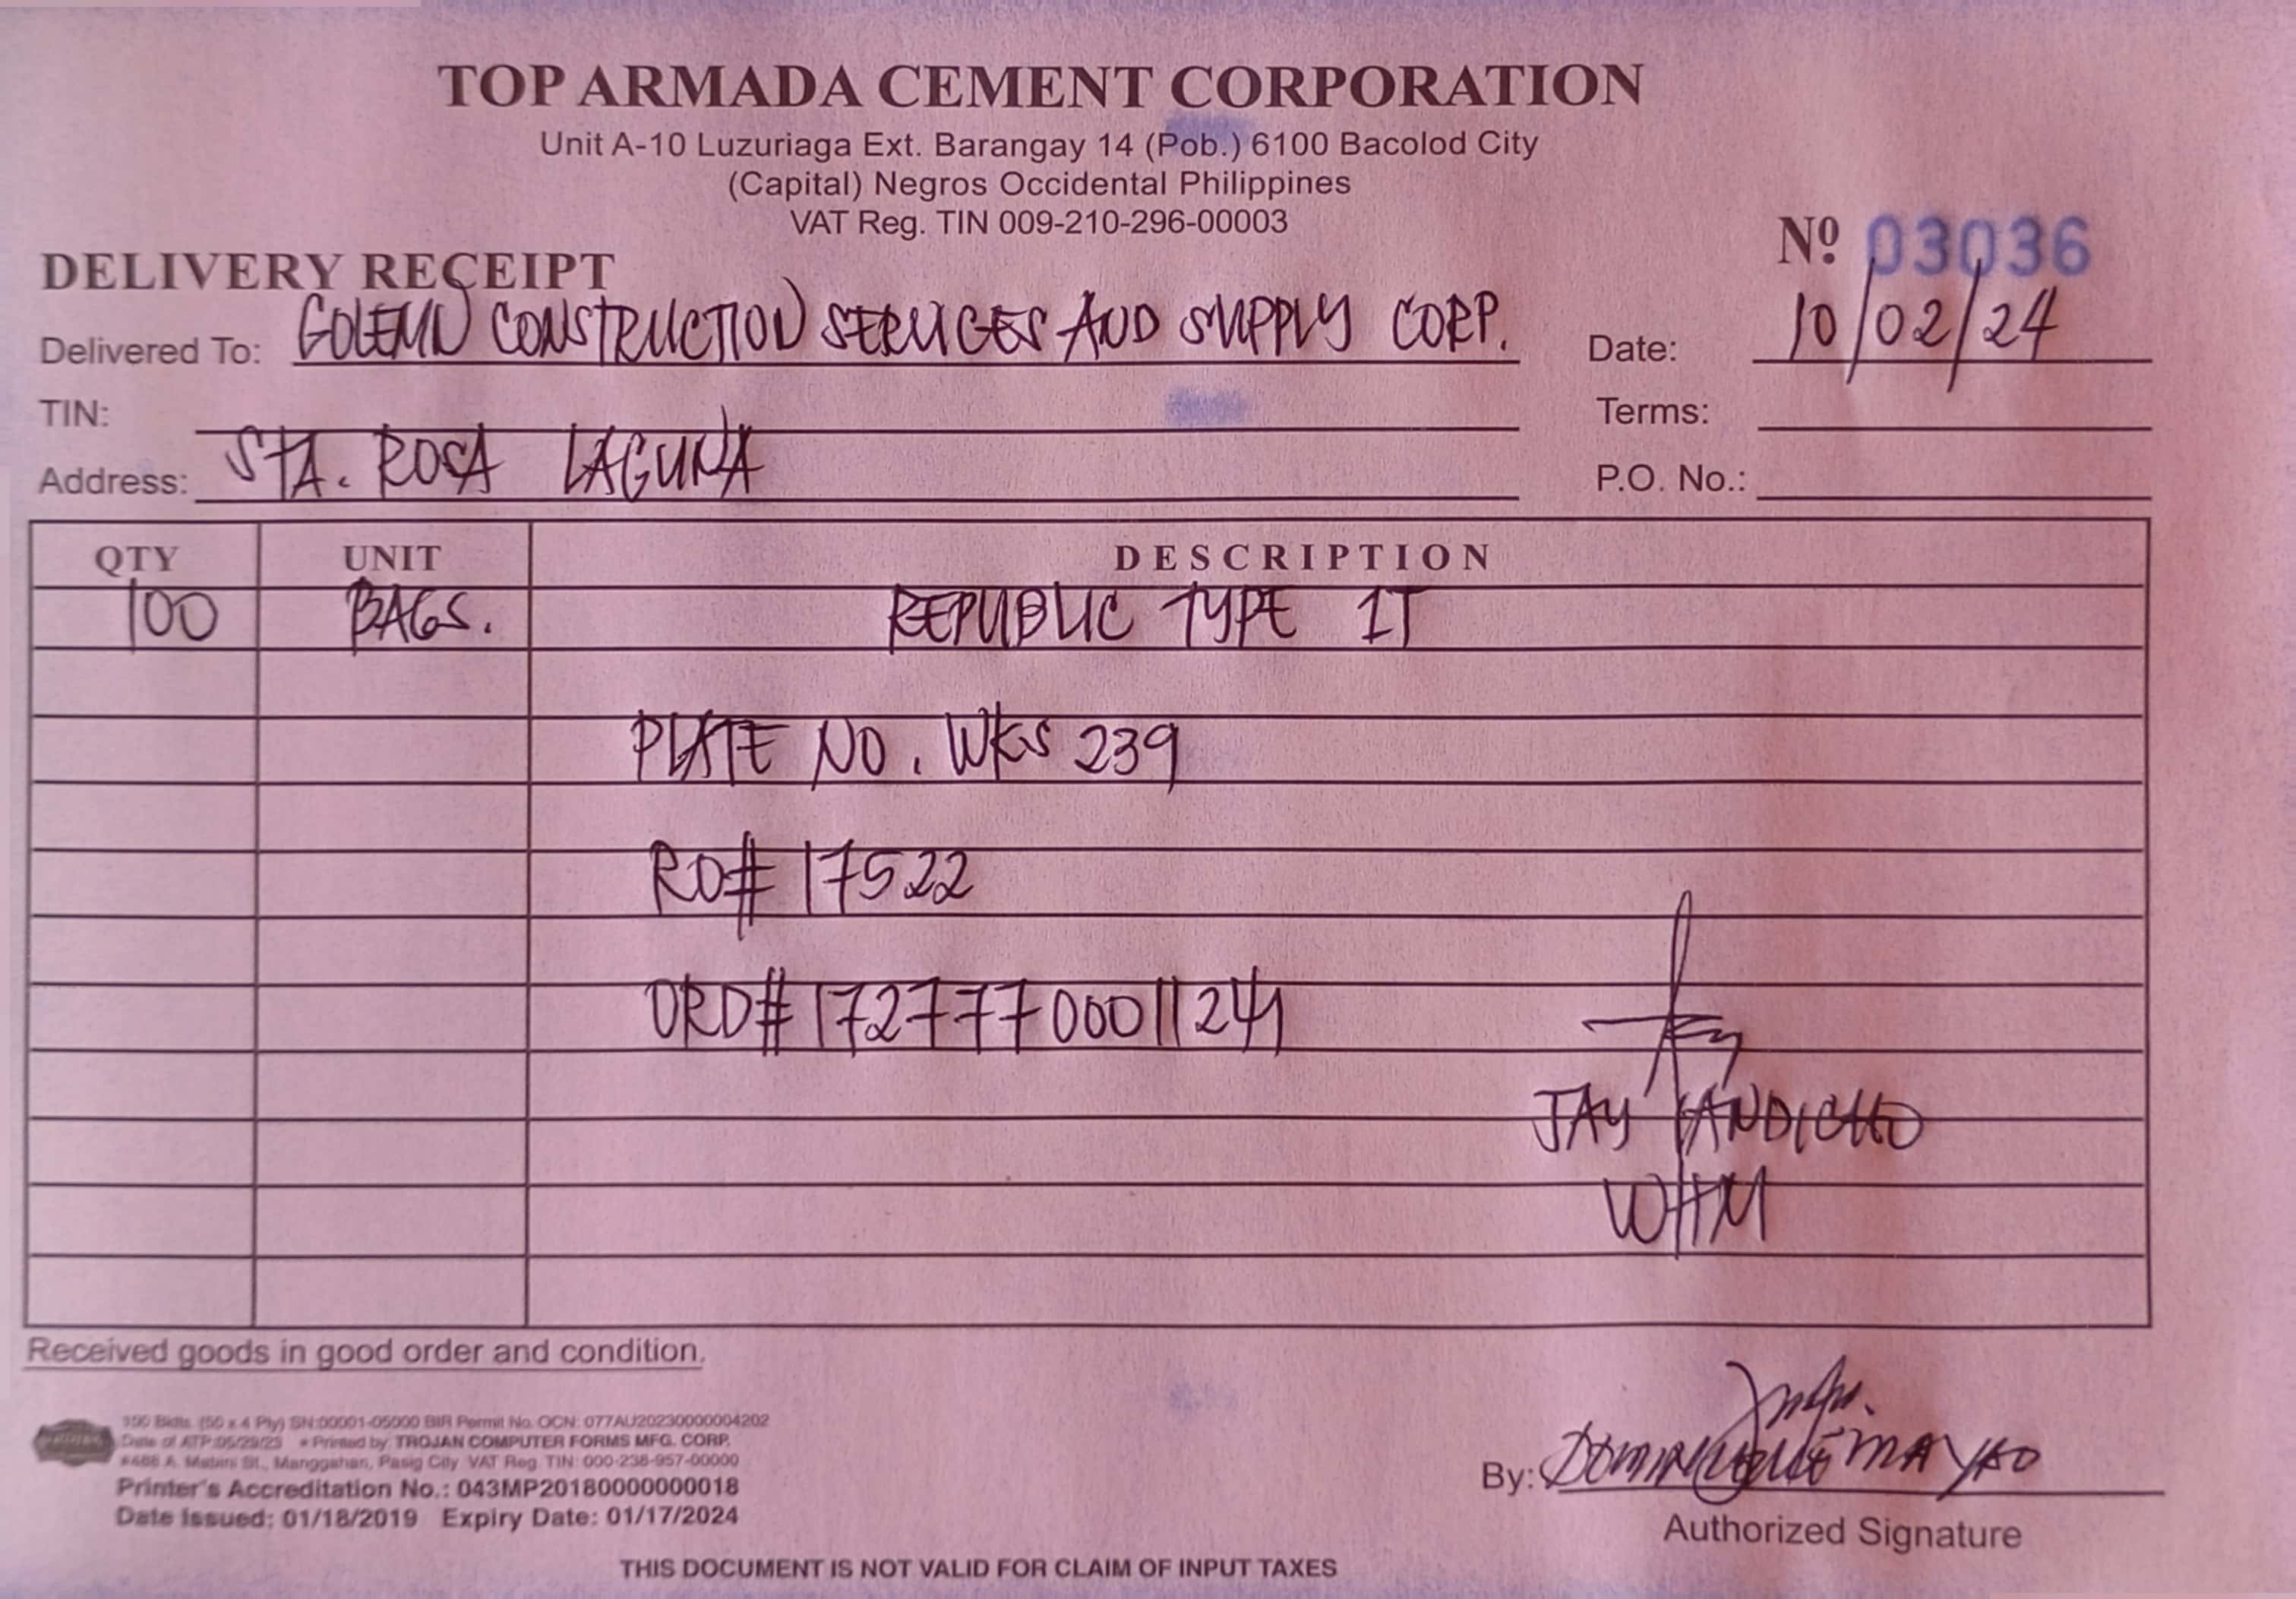 TOP ARMADA CEMENT CORPORATION
Unit A-10 Luzuriaga Ext. Barangay 14 (Pob.) 6100 Bacolod City
(Capital) Negros Occidental Philippines
VAT Reg. TIN 009-210-296-00003
Nº 03036
DELIVERY RECEIPT
Delivered To: GOLEMN CONSTRUCTION SERVICES AND SUPPLY CORP. Date: 10/02/24
TIN: Terms:
Address: STA. ROSA LAGUNA P.O. No.:
QTY UNIT DESCRIPTION
100 BAGS. REPUBLIC TYPE 1T
PLATE NO. WKS 239
RO# 17522
ORD# 17277700011241
JAY LANDICHO
WHM
Received goods in good order and condition.
100 Bklts. (50 x 4 Ply) SN:00001-05000 BIR Permit No. OCN: 077AU20230000004202
Date of ATP:05/29/23 • Printed by: TROJAN COMPUTER FORMS MFG. CORP.
#486 A. Mabini St., Manggahan, Pasig City VAT Reg. TIN: 000-238-957-00000
Printer's Accreditation No.: 043MP20180000000018
Date Issued: 01/18/2019 Expiry Date: 01/17/2024
By: MAYAO
Authorized Signature
THIS DOCUMENT IS NOT VALID FOR CLAIM OF INPUT TAXES